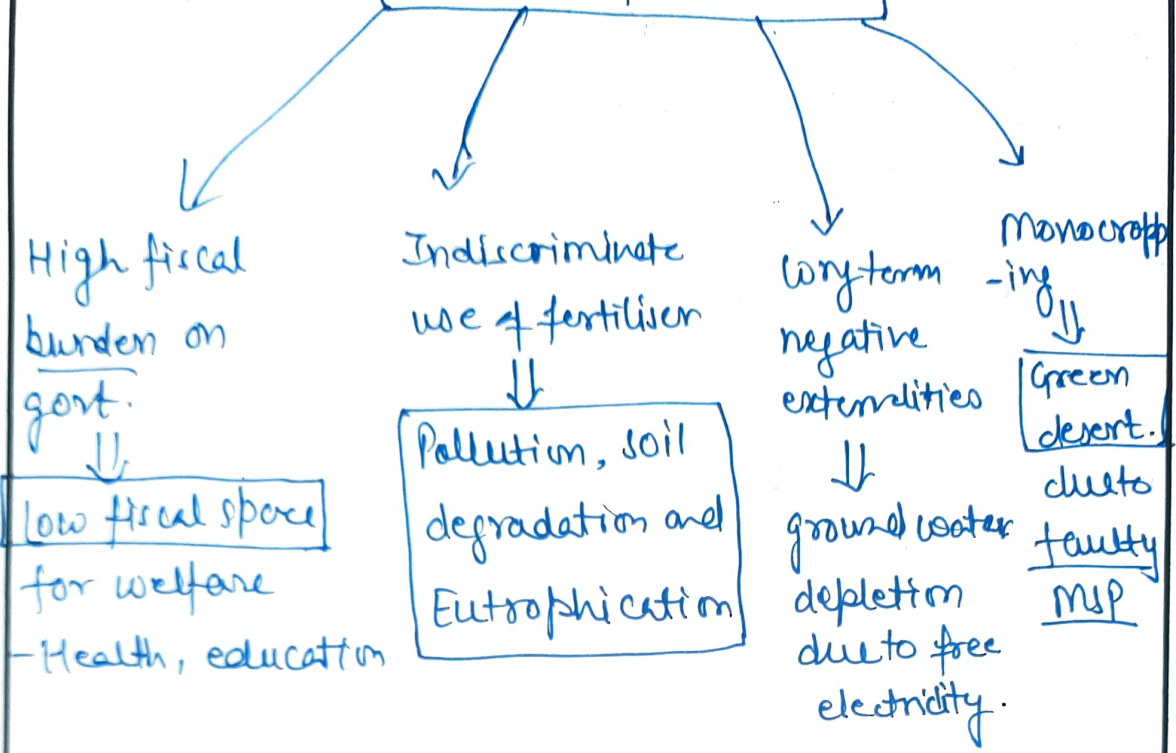 High fiscal
burden on
govt.
Low fiscal space
for welfare
- Health, education
Indiscriminate
use of fertiliser
Pollution, soil
degradation and
Eutrophication
Longterm
negative
externalities
ground water
depletion
due to free
electricity.
Monocropp
-ing
Green
desert.
due to
faulty
MSP